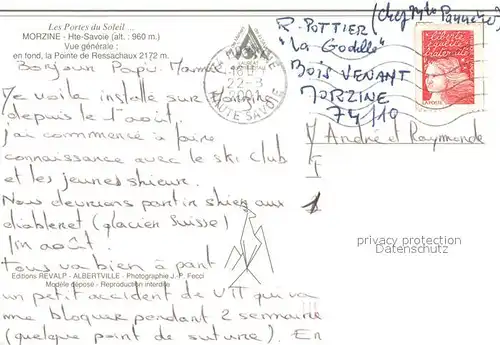 Les Portes du Soleil ...
MORZINE - Hte-Savoie (alt. : 960 m.)
Vue générale :
en fond, la Pointe de Ressachaux 2172 m.
Bonjour Papi, Mamie
Me voila installe sur Morzine
depuis le 1 août.
j'ai commencé à faire
connaissance avec le ski club
et les jeunes skieur.
Nous devrions partir skier aux
diableret (glacier Suisse)
fin août.
tous va bien à part
un petit accident de VTT qui va
me bloquer pendant 2 semaine
(quelque point de suture). En
Editions REVALP - ALBERTVILLE - Photographie J.-P. Fecci
Modèle déposé - Reproduction interdite
MORZINE
18H
22-8
HAUTE SAVOIE
R. POTTIER (chez
"La Godille"
BOIS VENANT
MORZINE
74110
liberté
égalité
fraternité
LA POSTE
André et Raymonde
privacy protection
Datenschutz